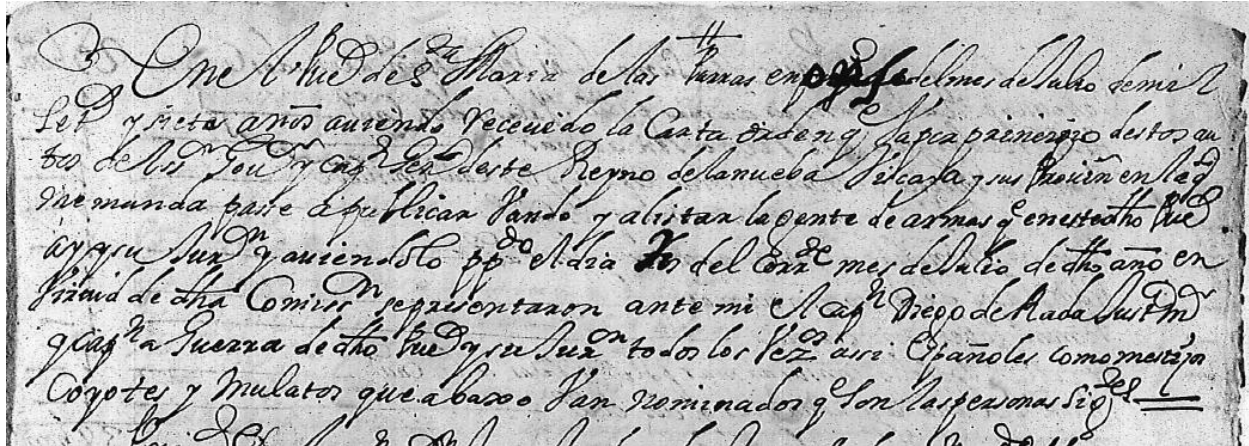 En el Pueᵒ de Sᵗᵃ Maria de las Parras en onze del mes de Julio de mil
Setᵒˢ y siete años auiendo receuido la Carta orden qᵉ ba por prinsipio destos au
tos del sʳ Gouᵒʳ y Capⁿ Genˡ deste Reyno de la nueba Viscaya y sus Prouinᵃˢ en la qˡ
me manda passe a publicar Vando y alistar la gente de armas qᵉ en este dho Pueᵒ
ay y su Jurᵒⁿ y auiendolo ppᵈᵒ el dia del Corrᵗᵉ mes de Julio de dho año en
Virtud de dha Comissᵒⁿ se presentaron ante mi el Capⁿ Diego de Rada Justᵃ mʳ
y capⁿ a Guerra de dho Pueᵒ y su Jurᵒⁿ todos los Vezᵒˢ assi Españoles como mestizos
Coyotes y Mulatos que abaxo Van nominados qᵉ son las personas sigᵗᵉˢ